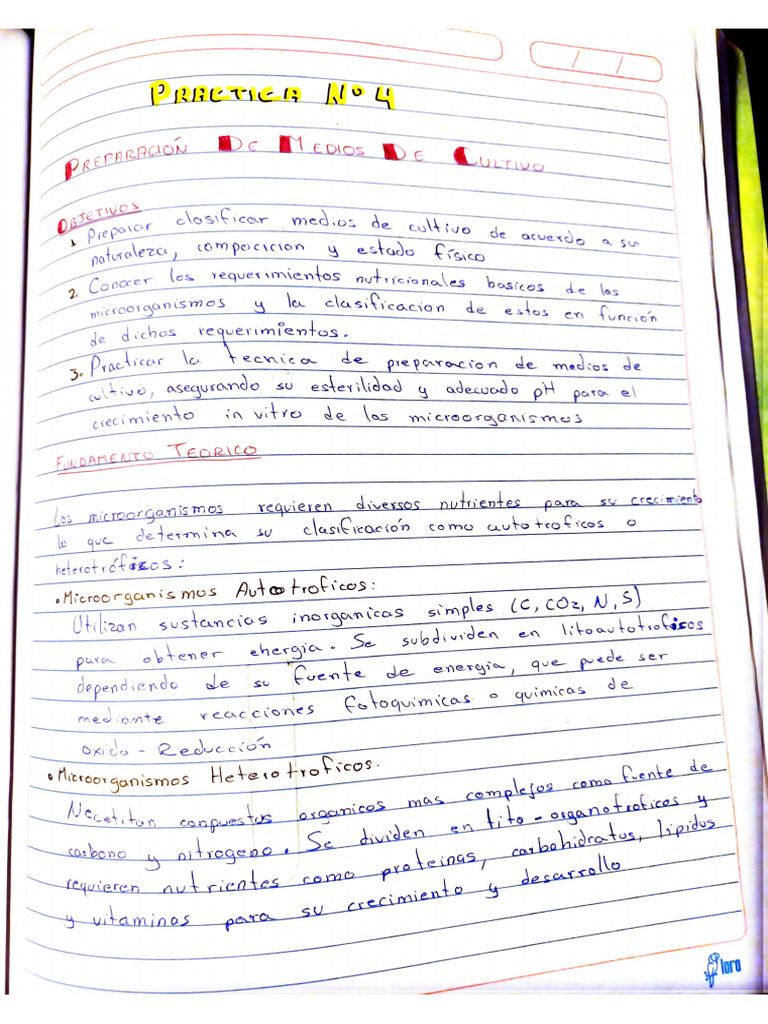 PRACTICA Nº 4
PREPARACIÓN DE MEDIOS DE CULTIVO
OBJETIVOS
1. Preparar clasificar medios de cultivo de acuerdo a su
naturaleza, compocicion y estado físico
2. Conocer los requerimientos nutricionales basicos de los
microorganismos y la clasificacion de estos en función
de dichos requerimientos.
3. Practicar la tecnica de preparacion de medios de
cultivo, asegurando su esterilidad y adecuado pH para el
crecimiento in vitro de los microorganismos
FUNDAMENTO TEORICO
Los microorganismos requieren diversos nutrientes para su crecimiento
lo que determina su clasificación como autotroficos o
heterotróficos:
• Microorganismos Autotroficos:
Utilizan sustancias inorganicas simples (C, CO2, N, S)
para obtener energia. Se subdividen en litoautotroficos
dependiendo de su fuente de energia, que puede ser
mediante reacciones fotoquimicas o quimicas de
oxido - Reducción
• Microorganismos Heterotroficos.
Necetitan conpuestos organicos mas complejos como fuente de
carbono y nitrogeno. Se dividen en fito - organotroficos y
requieren nutrientes como proteinas, carbohidratos, lipidos
y vitaminas para su crecimiento y desarrollo
loro